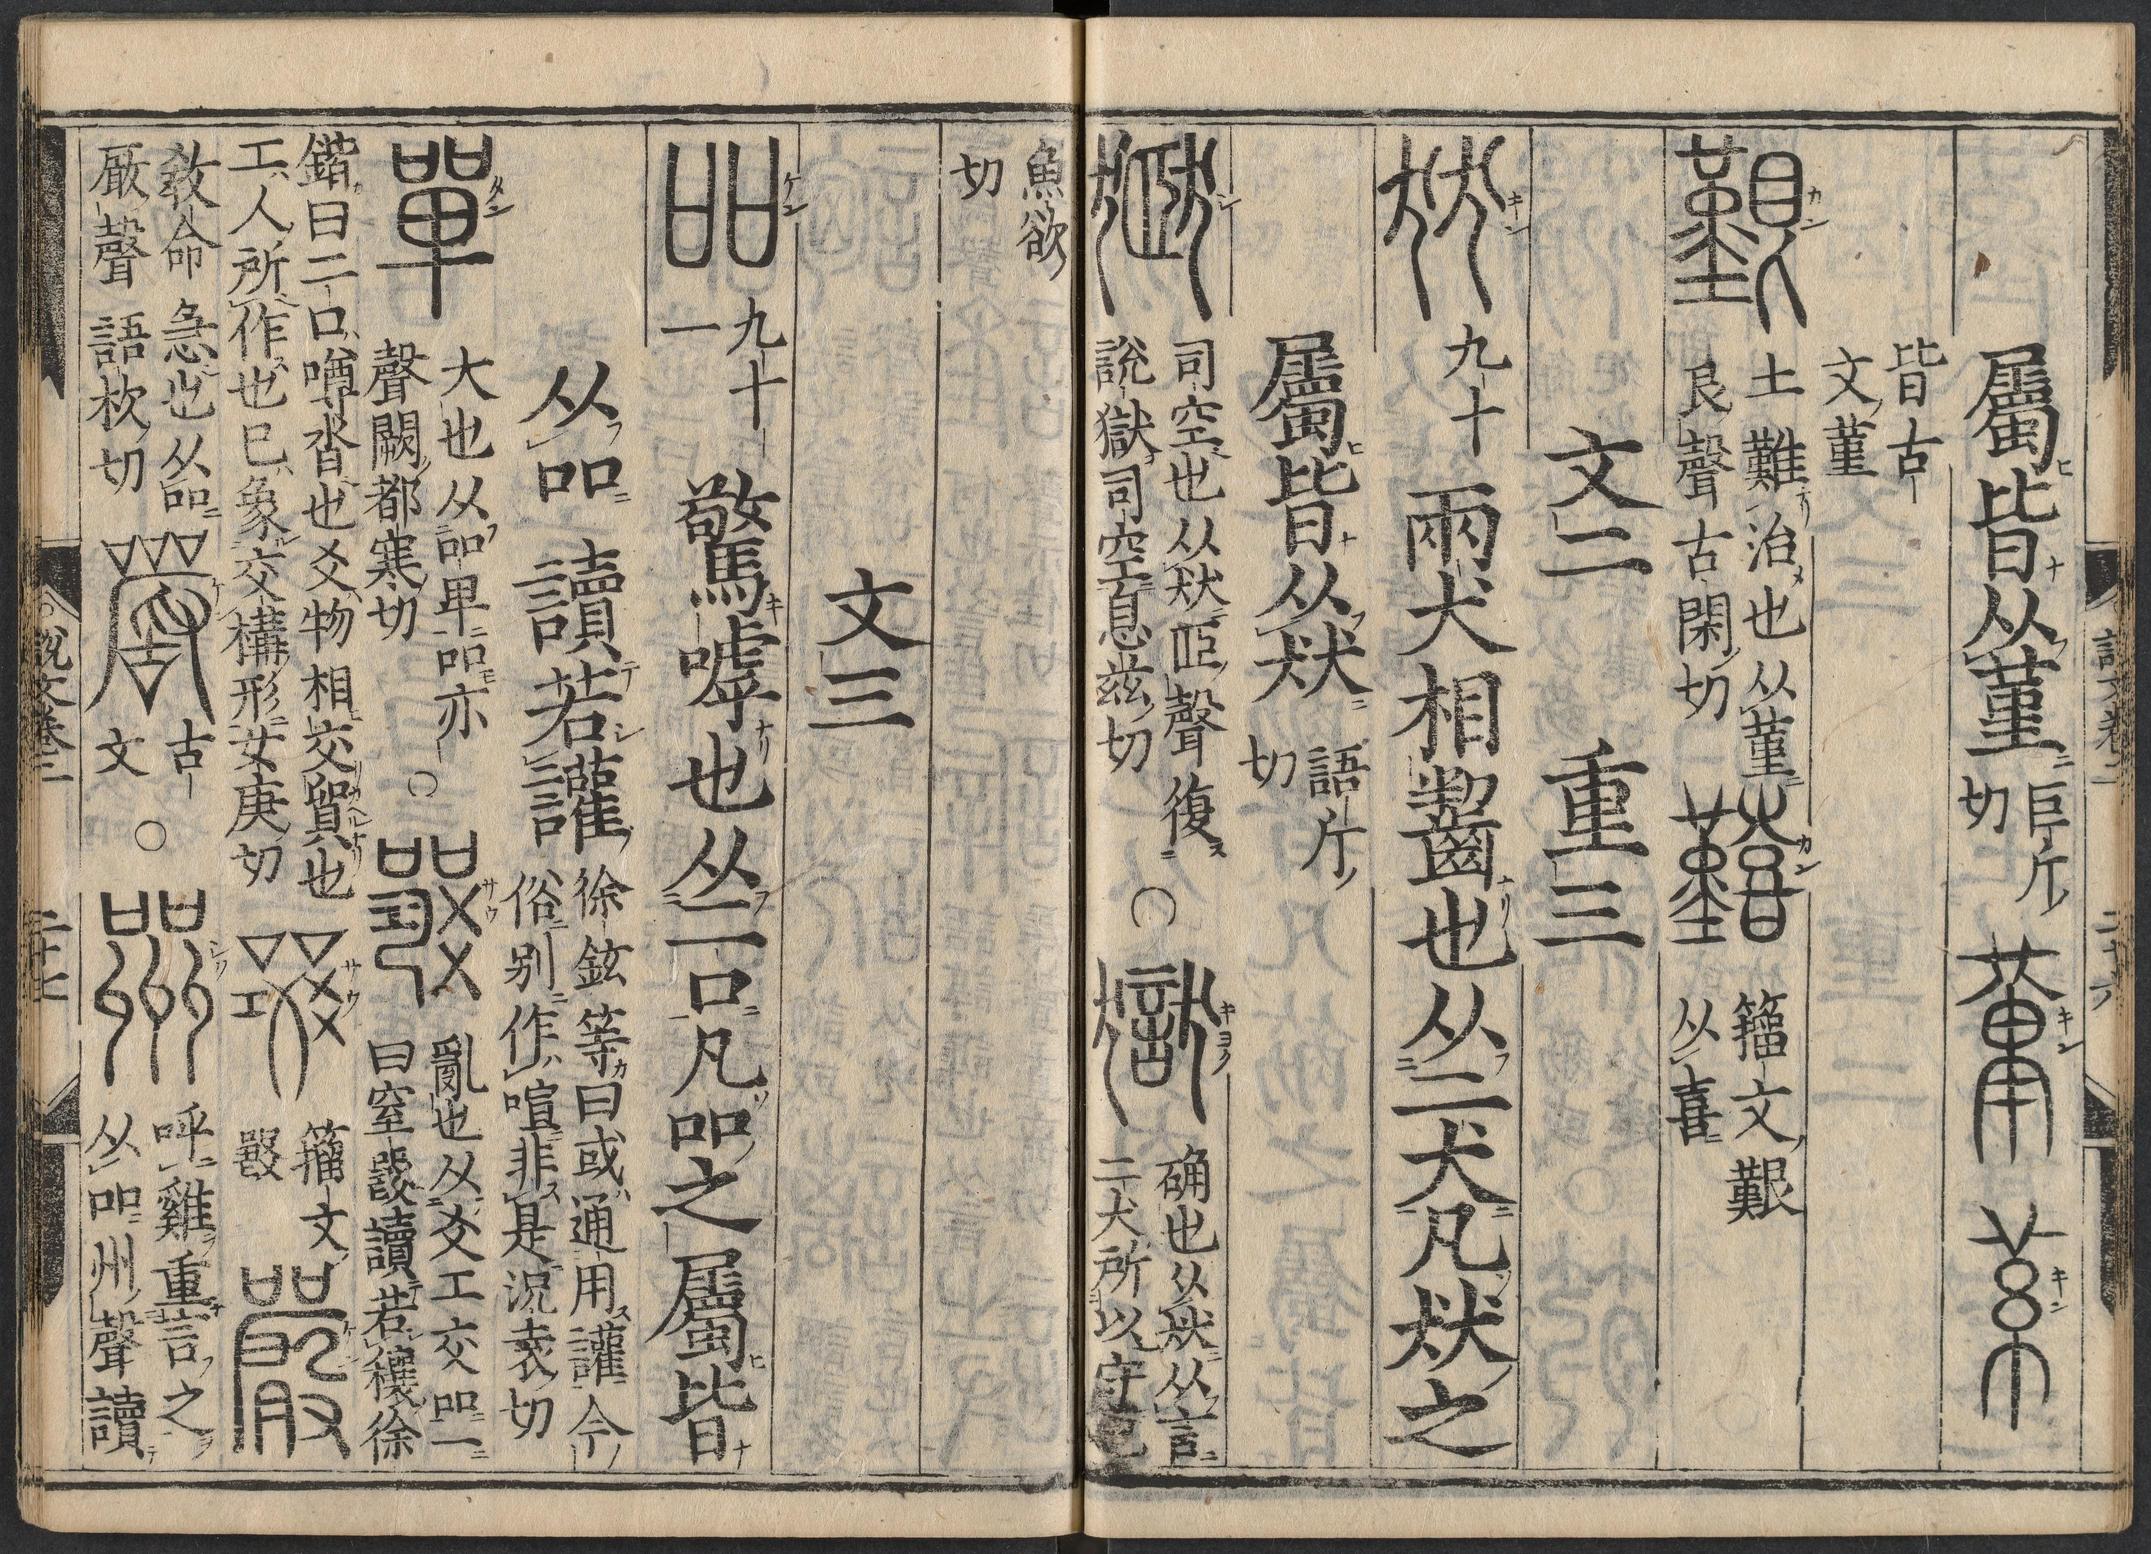 屬皆从堇巨斤切
皆古文堇
艱土難治也从堇艮聲古閑切囏籒文艱从喜
文二 重三
㹜九十兩犬相齧也从二犬凡㹜之
屬皆从㹜語斤切
司空也从㹜𦣞聲復說獄司空息兹切〇獄确也从㹜从言二犬所以守也
魚欲切
文三
吅九十一驚嘑也从二口凡吅之屬皆
从吅讀若讙徐鉉等曰或通用讙今俗別作喧非是況袁切
單大也从吅𠦒吅亦聲闕都寒切〇亂也从爻工交吅一曰窒𤕦讀若穰徐
鍇曰二口噂沓也爻物相交質也工人所作也已象交構形女庚切籒文𤕦嚴
教命急也从吅厰聲語杴切古文〇呼雞重言之从吅州聲讀
說文卷二 二十六
說文卷二 二十七